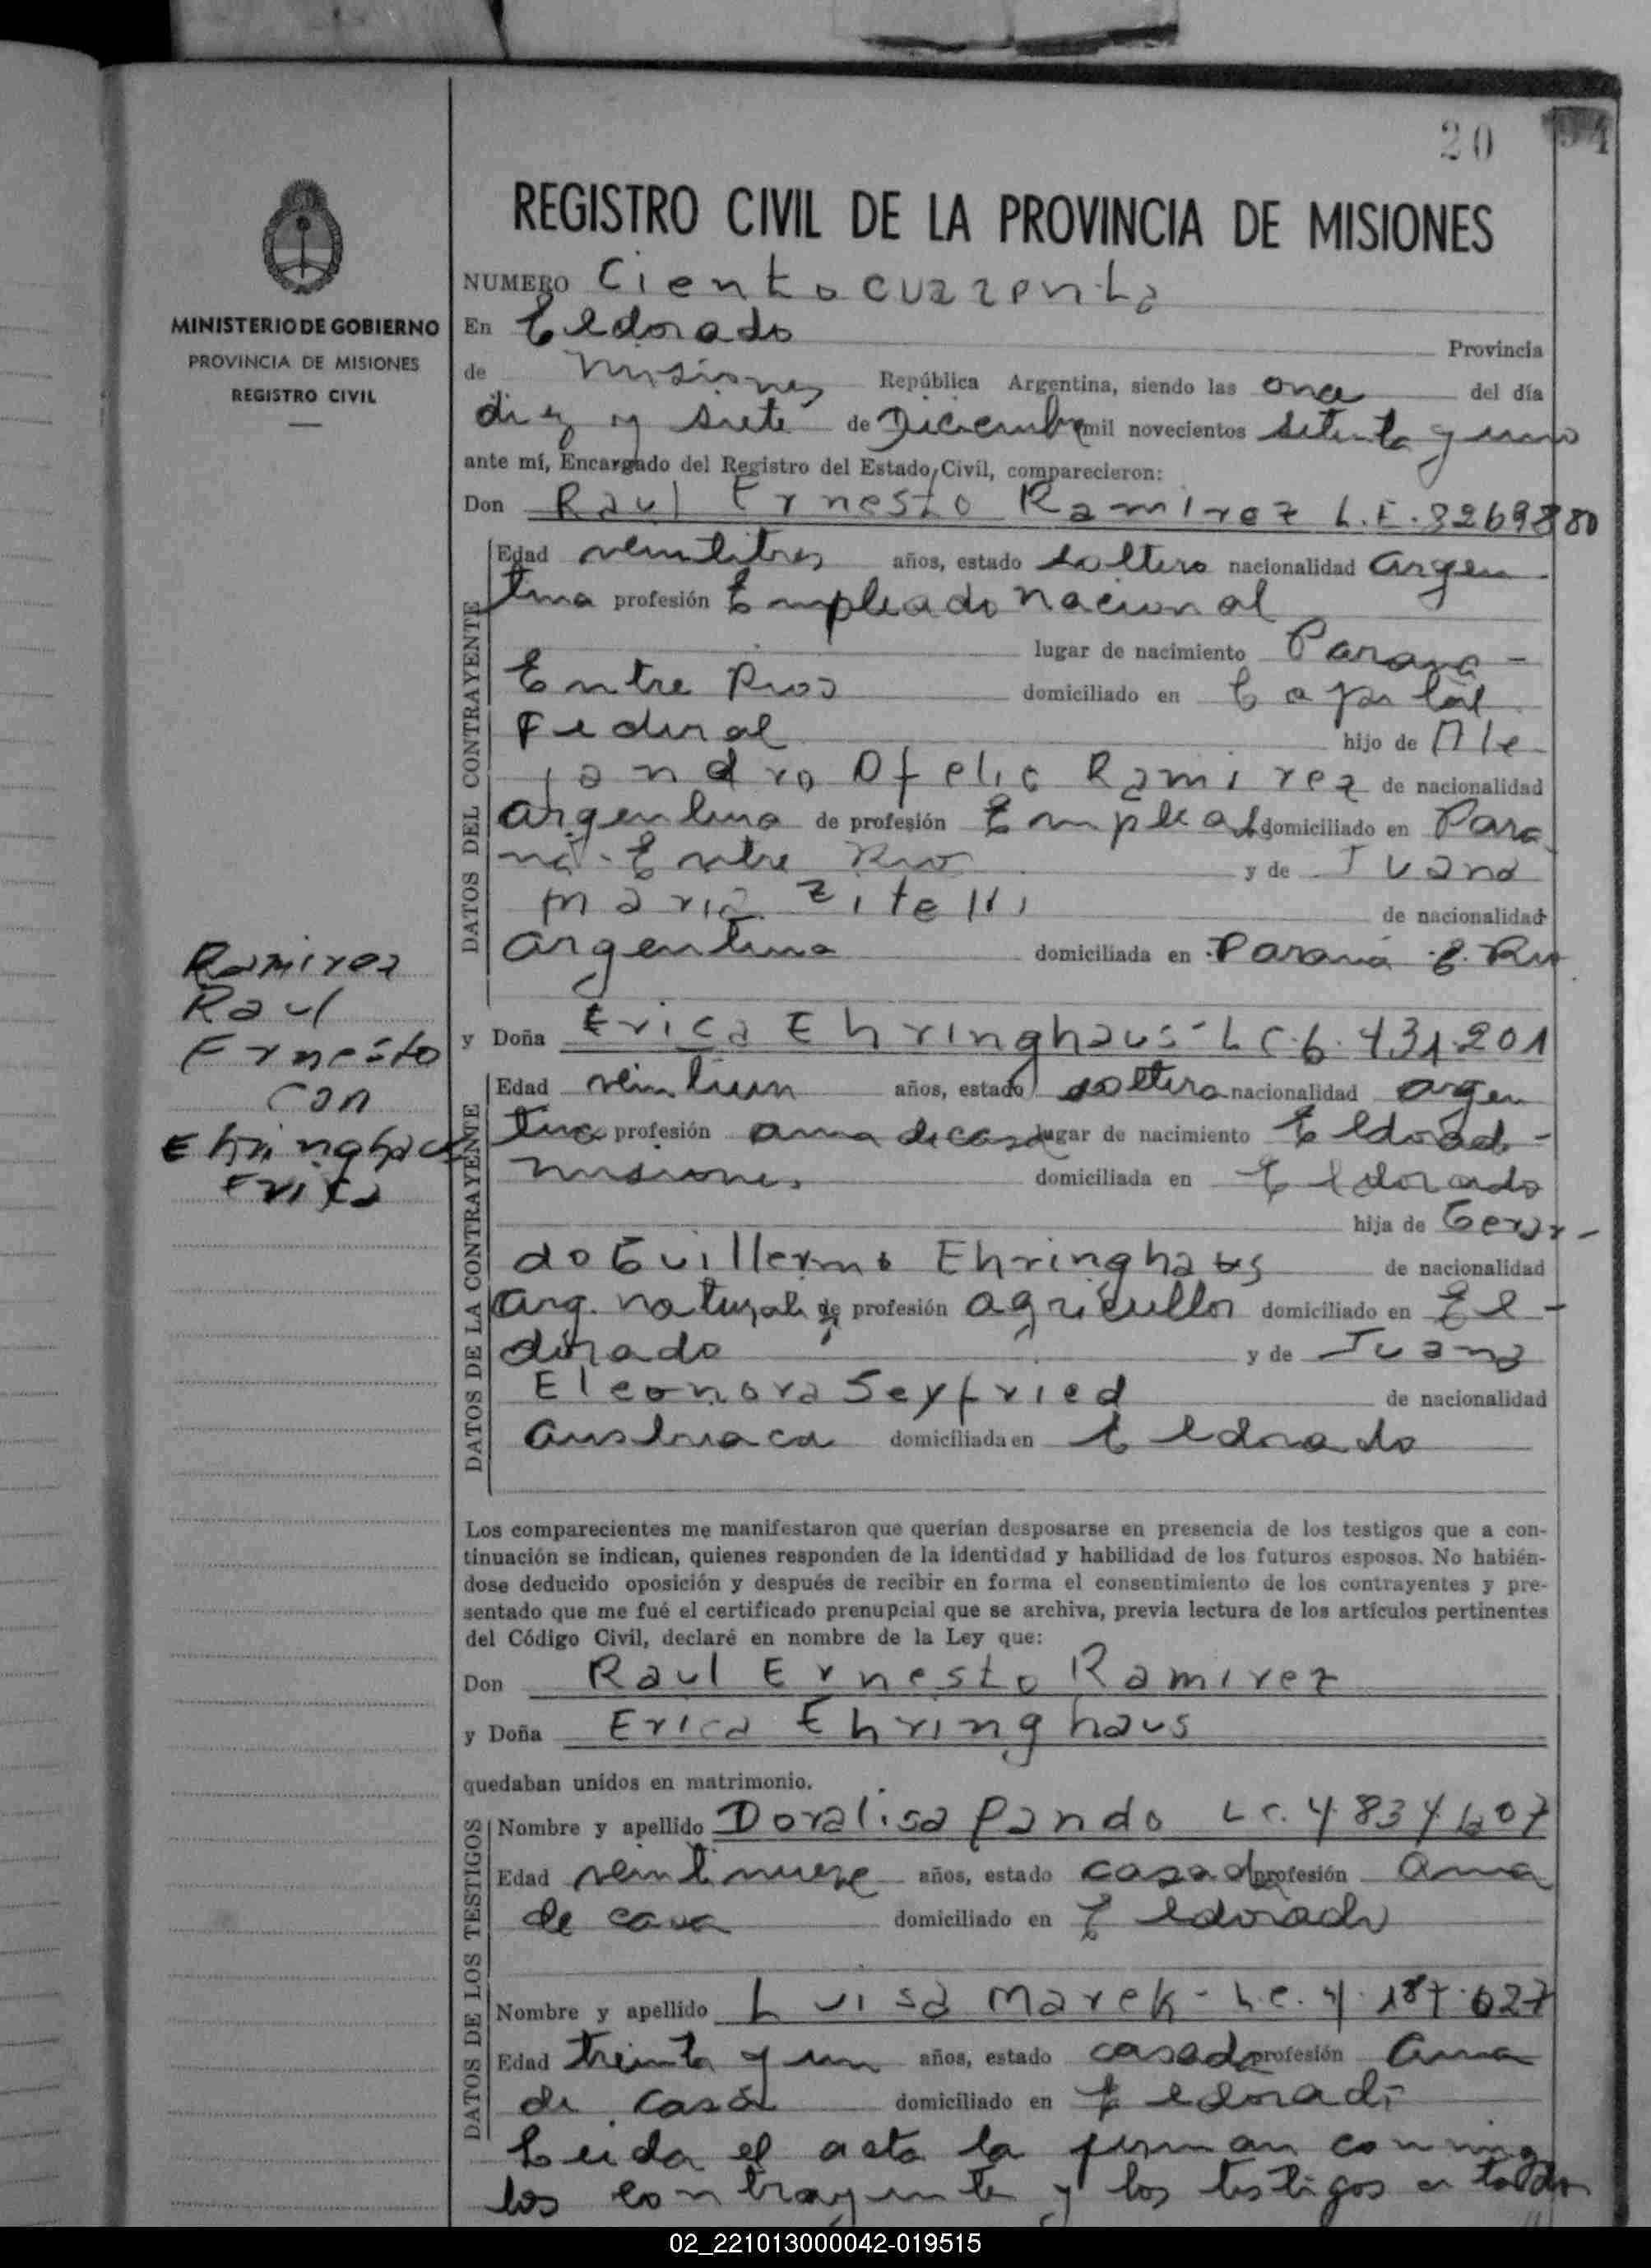 20 94
REGISTRO CIVIL DE LA PROVINCIA DE MISIONES
NUMERO Ciento cuarenta
MINISTERIO DE GOBIERNO
PROVINCIA DE MISIONES
REGISTRO CIVIL
En Eldorado Provincia
de Misiones República Argentina, siendo las once del día
diez y siete de Diciembre mil novecientos setenta y uno
ante mí, Encargado del Registro del Estado Civil, comparecieron:
Don Raul Ernesto Ramirez L.E.
DATOS DEL CONTRAYENTE
Edad veintitres años, estado soltero nacionalidad argen
tina profesión Empleado nacional
lugar de nacimiento Parana -
Entre Rios domiciliado en Capital
Federal hijo de Ale
jandro Ofelio Ramirez de nacionalidad
argentina de profesión Empleado domiciliado en Para
ná - Entre Rio y de Juana
Maria Zitelli de nacionalidad
argentina domiciliada en Paraná E. Rio
Ramirez
Raul
Ernesto
con
Ehringhaus
Erica
y Doña Erica Ehringhaus - L.C. 6.431.201
DATOS DE LA CONTRAYENTE
Edad veintiun años, estado soltera nacionalidad argen
tina profesión ama de casa lugar de nacimiento Eldorado -
Misiones domiciliada en Eldorado
hija de Gerar-
do Guillermo Ehringhaus de nacionalidad
arg. naturaliz de profesión agricultor domiciliado en El-
dorado y de Juana
Eleonora Seyfried de nacionalidad
Austriaca domiciliada en Eldorado
Los comparecientes me manifestaron que querían desposarse en presencia de los testigos que a con-
tinuación se indican, quienes responden de la identidad y habilidad de los futuros esposos. No habién-
dose deducido oposición y después de recibir en forma el consentimiento de los contrayentes y pre-
sentado que me fué el certificado prenupcial que se archiva, previa lectura de los artículos pertinentes
del Código Civil, declaré en nombre de la Ley que:
Don Raul Ernesto Ramirez
y Doña Erica Ehringhaus
quedaban unidos en matrimonio.
DATOS DE LOS TESTIGOS
Nombre y apellido Doralisa Pando L.C. 4.834.607
Edad veintinueve años, estado casada profesión ama
de casa domiciliado en Eldorado
Nombre y apellido Luisa Marek - L.C. 4.187.627
Edad treinta y un años, estado casada profesión ama
de casa domiciliado en Eldorado
Leida el acta la firman conmigo
los contrayente y los testigos
02_221013000042-019515